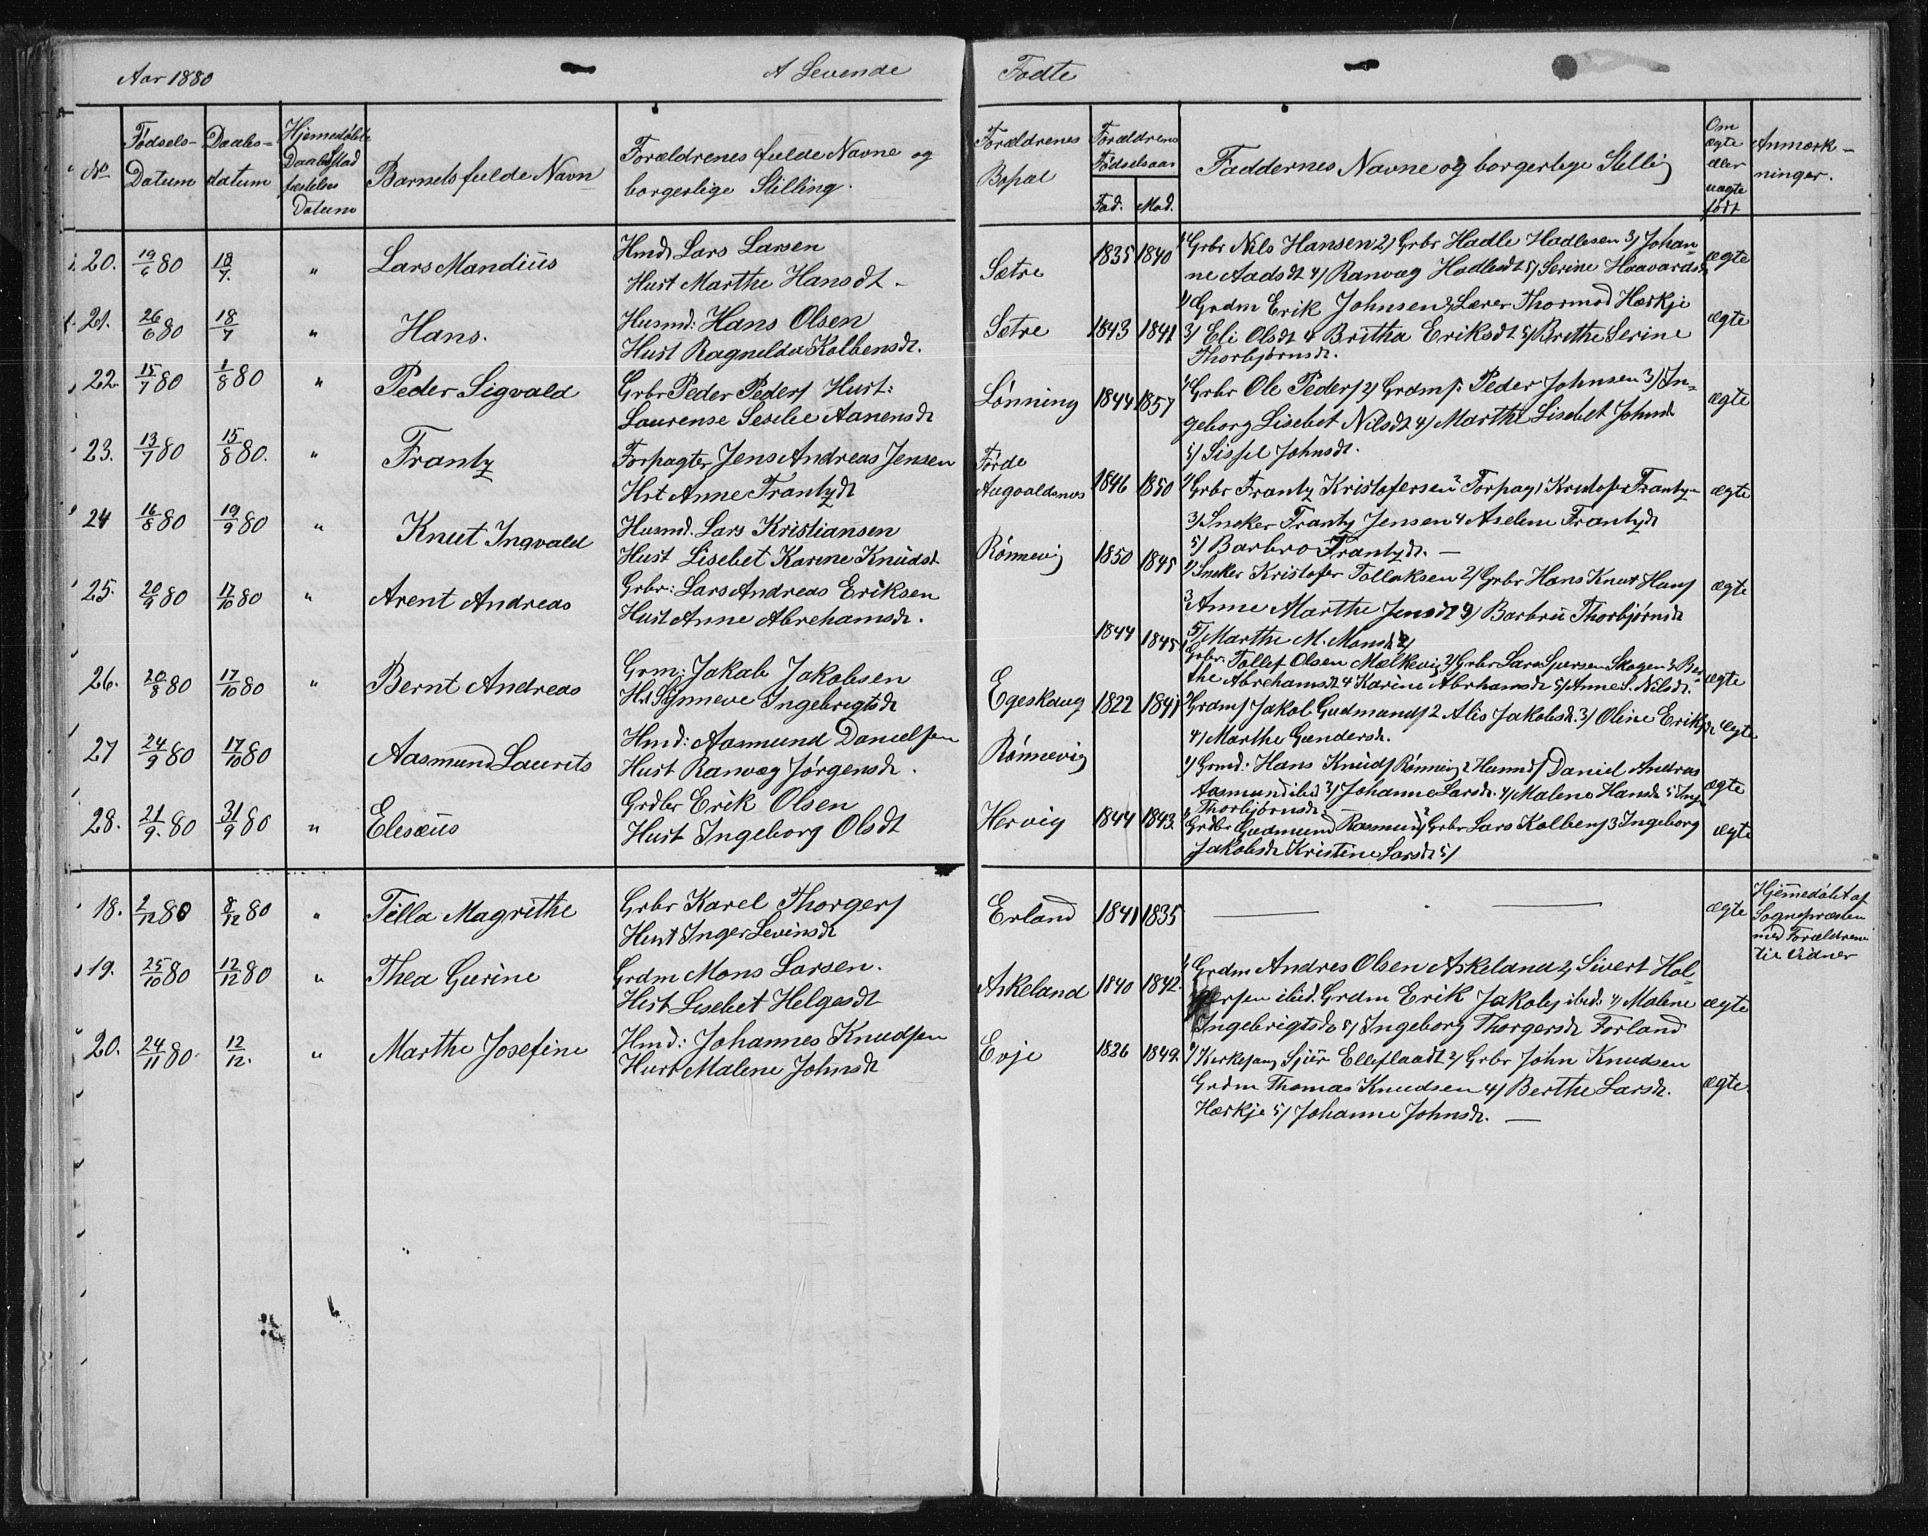 Aar 1880
A Levende
Fødte
No
Fødsels-
Datum
Daabs-
datum
Hjemmedøbte
Daabs Stad
fæstelses
Datum
Barnets fulde Navn
Forældrenes fulde Navne og
borgerlige Stilling.
Forældrenes
Bopæl
Forældrenes
Fødselsaar
Fad. Mod.
Faddernes Navne og borgerlige Stilling
Om
ægte
eller
uægte
født
Anmærk-
ninger.
20. 19/6 80 18/7. " Lars Mandius
Hmd Lars Larsen
Hust Marthe Hansdt -
Sætre 1835 1840
1/ Grbr Nils Hansen 2/ Grbr Hadle Hadlesen 3/ Johan-
ne Aadsdt 4/ Ranvæg Hadlesdt 5/ Serine Haavardsdt
ægte
21. 26/6 80 18/7 " Hans.
Husmd: Hans Olsen
Hust Ragnelda Kolbensdt.
Sætre 1843 1841
1/ Grdm Erik Johnsen 2/ Lærer Thormod Hærkje
3/ Eli Olsdt 4 Britha Eriksdt 5/ Brethe Serine
Thorbjørnsdt.
ægte
22. 15/7 80 1/8 80 " Peder Sigvald
Grbr Peder Peders Hust:
Laurense Sesilie Aanensdt
Lønning 1844 1857
1/ Grbr Ole Peders 2/ Grdms: Peder Johnsen 3/ In-
geborg Lisebet Nilsdt 4/ Marthe Lisebet Johnsdt
5/ Sissel Johnsdt.
ægte
23. 13/7 80 15/8 80. " Frantz
Forpagter Jens Andreas Jensen
Hst Anne Frantzdt
Førde
Augvaldsnes 1846 1850
1/ Grbr Frantz Kristofersen 2 Forpag: Kristofer Frantz-
3/ Sneker Frantz Jensen 4 Aselene Frantzdt
5/ Barbro Frantzdt. -
ægte
24 16/8 80 19/9 80 " Knut Ingvald
Husmd. Lars Kristiansen
Hust Lisebet Karine Knudsdt
Rønnevig 1850 1845
1/ Sneker Kristofer Tollaksen 2/ Grbr Hans Knut Hans
3 Anne Marthe Jensdt 4/ Barbru Thorbjørnsdt
5/ Marthe M. Monsdt
ægte
25. 20/9 80 17/10 80 " Arent Andreas
Grbr: Lars Andreas Eriksen
Hust Anne Abrehamsdt.
1844 1845
Grbr. Tollef Olsen Mælkevig 2/ Grbr Lars Sjursen Skogen 3 Ber-
the Abrehamsdt 4 Karine Abrhamsdt 5/ Anne S. Nilsdt.
ægte
26. 20/8 80 17/10 80 " Bernt Andreas
Grm: Jakob Jakobsen
Hst Synneve Ingebrigtsdt
Egeskaug 1822 1841
Grdms Jakob Gudmunds 2 Alis Jakobsdt. 3/ Oline Eriksdt
4/ Marthe Gundersdt.
ægte
27 24/9 80 17/10 80 Aasmund Laurits
Hmd: Aasmund Danielsen
Hust Ranvæg Jørgensdt.
Rønnevig
1/ Grmd: Hans Knuds Rønnevig 2 Husmd Daniel Andreas
Aasmund ibid 3/ Johanne Larsdt. 4/ Malene Hansdt 5 Ing.
Thorbjørnsdt
ægte
28. 21/9. 80 31/9 80 " Elesæus
Grdbr Erik Olsen
Hust Ingeborg Olsdt
Hervig 1844 1843.
1/ Grdbr Gudmund Rasmus 2/ Grbr Lars Kolbens 3 Ingeborg
Jakobsdt Kristine Larsdt 5/
ægte
18. 2/12 80 8/12 80 " Tilla Magrethe
Grbr Karel Thorgers
Hust Inger Levinsdt
Erland 1841 1835
ægte
Hjemmedøbt af
Sognepræsten
med Forældrene
til Vidner
19. 25/10 80 12/12 80 " Thea Gurine
Grdm Mons Larsen.
Hust Lisebet Helgesdt
Askeland 1840 1842.
1/ Grdm Andres Olsen Askeland 2/ Sivert Hol-
gersen ibid. Grdm Erik Jakobs ibid. 4/ Malene
Ingebrigtsdt 5/ Ingeborg Thorgersdt Førland
ægte
20. 24/11 80. 12/12. " Marthe Josefine
Hmd: Johannes Knudsen
Hust Malene Johnsdt
Evje 1826 1849.
1/ Kirkesang Sjur Elleflaadt 2/ Grbr John Knudsen
Grdm Thomas Knudsen 4/ Berthe Larsdt.
Hærkje 5/ Johanne Johnsdt. -
ægte.